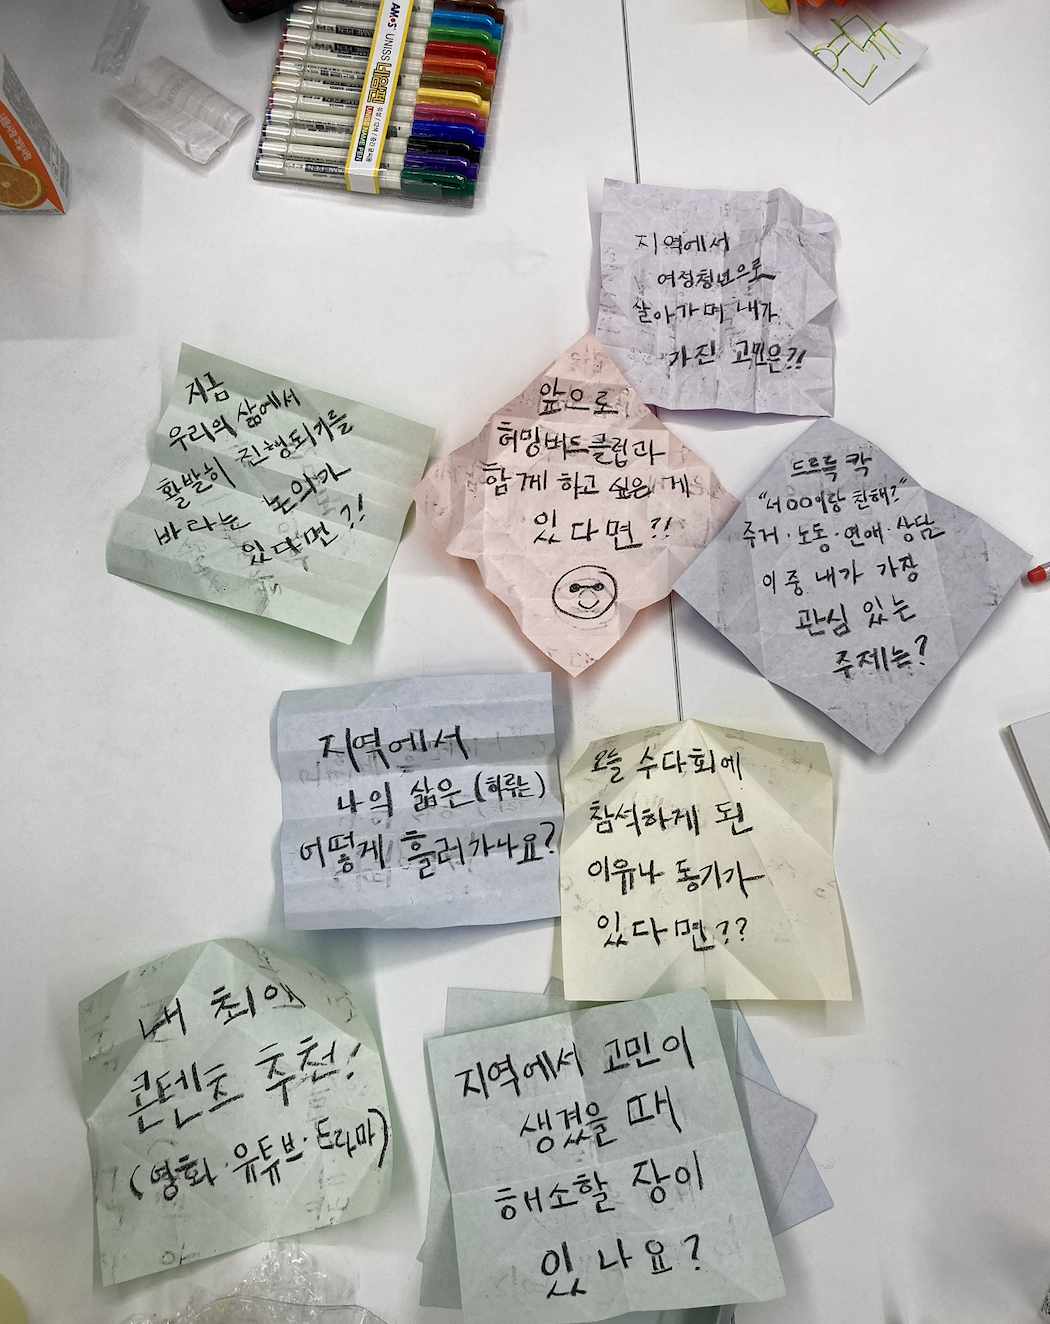 AMOS UNISS 네임펜
UNISS NAME PEN
지역에서
여성청년으로
살아가며 내가
가진 고민은?!
지금
우리의 삶에서
활발히 진행되기를
바라는 논의가
있다면?!
앞으로
허밍버드클럽과
함께 하고 싶은 게
있다면?!
드르륵 칵
"너 00이랑 친해?"
주거·노동·연애·상담
이 중 내가 가장
관심 있는
주제는?
지역에서
나의 삶은 (하루는)
어떻게 흘러가나요?
오늘 수다회에
참석하게 된
이유나 동기가
있다면??
내 최애
콘텐츠 추천!
(영화·유튜브·드라마)
지역에서 고민이
생겼을 때
해소할 장이
있나요?